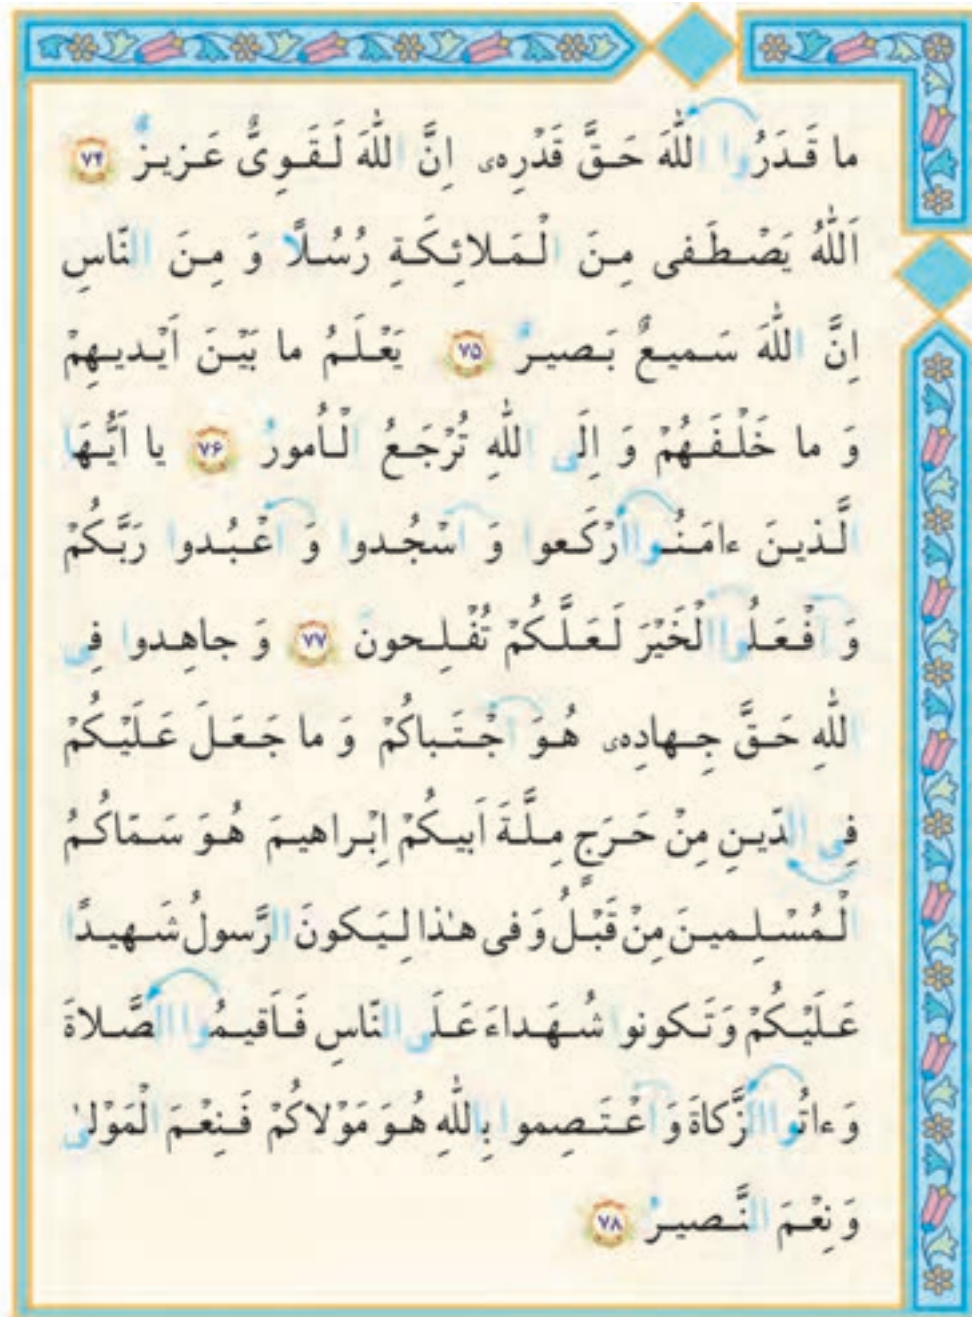 ما قَدَرُوا اللّٰهَ حَقَّ قَدْرِهٖ اِنَّ اللّٰهَ لَقَوِىٌّ عَزيزٌ ۷۴
اَللّٰهُ يَصْطَفى مِنَ الْمَلائِكَةِ رُسُلًا وَ مِنَ النّاسِ
اِنَّ اللّٰهَ سَميعٌ بَصيرٌ ۷۵ يَعْلَمُ ما بَيْنَ اَيْديهِمْ
وَ ما خَلْفَهُمْ وَ اِلَى اللّٰهِ تُرْجَعُ الْأُمورُ ۷۶ يا اَيُّهَا
الَّذينَ ءامَنُوا ارْكَعوا وَ اسْجُدوا وَ اعْبُدوا رَبَّكُمْ
وَ افْعَلُوا الْخَيْرَ لَعَلَّكُمْ تُفْلِحونَ ۷۷ وَ جاهِدوا فِى
اللّٰهِ حَقَّ جِهادِهٖ هُوَ اجْتَباكُمْ وَ ما جَعَلَ عَلَيْكُمْ
فِى الدّينِ مِنْ حَرَجٍ مِلَّةَ اَبيكُمْ اِبْراهيمَ هُوَ سَمّاكُمُ
الْمُسْلِمينَ مِنْ قَبْلُ وَ فى هٰذا لِيَكونَ الرَّسولُ شَهيدًا
عَلَيْكُمْ وَ تَكونوا شُهَداءَ عَلَى النّاسِ فَاَقيمُوا الصَّلاةَ
وَ ءاتُوا الزَّكاةَ وَ اعْتَصِموا بِاللّٰهِ هُوَ مَوْلاكُمْ فَنِعْمَ الْمَوْلىٰ
وَ نِعْمَ النَّصيرُ ۷۸